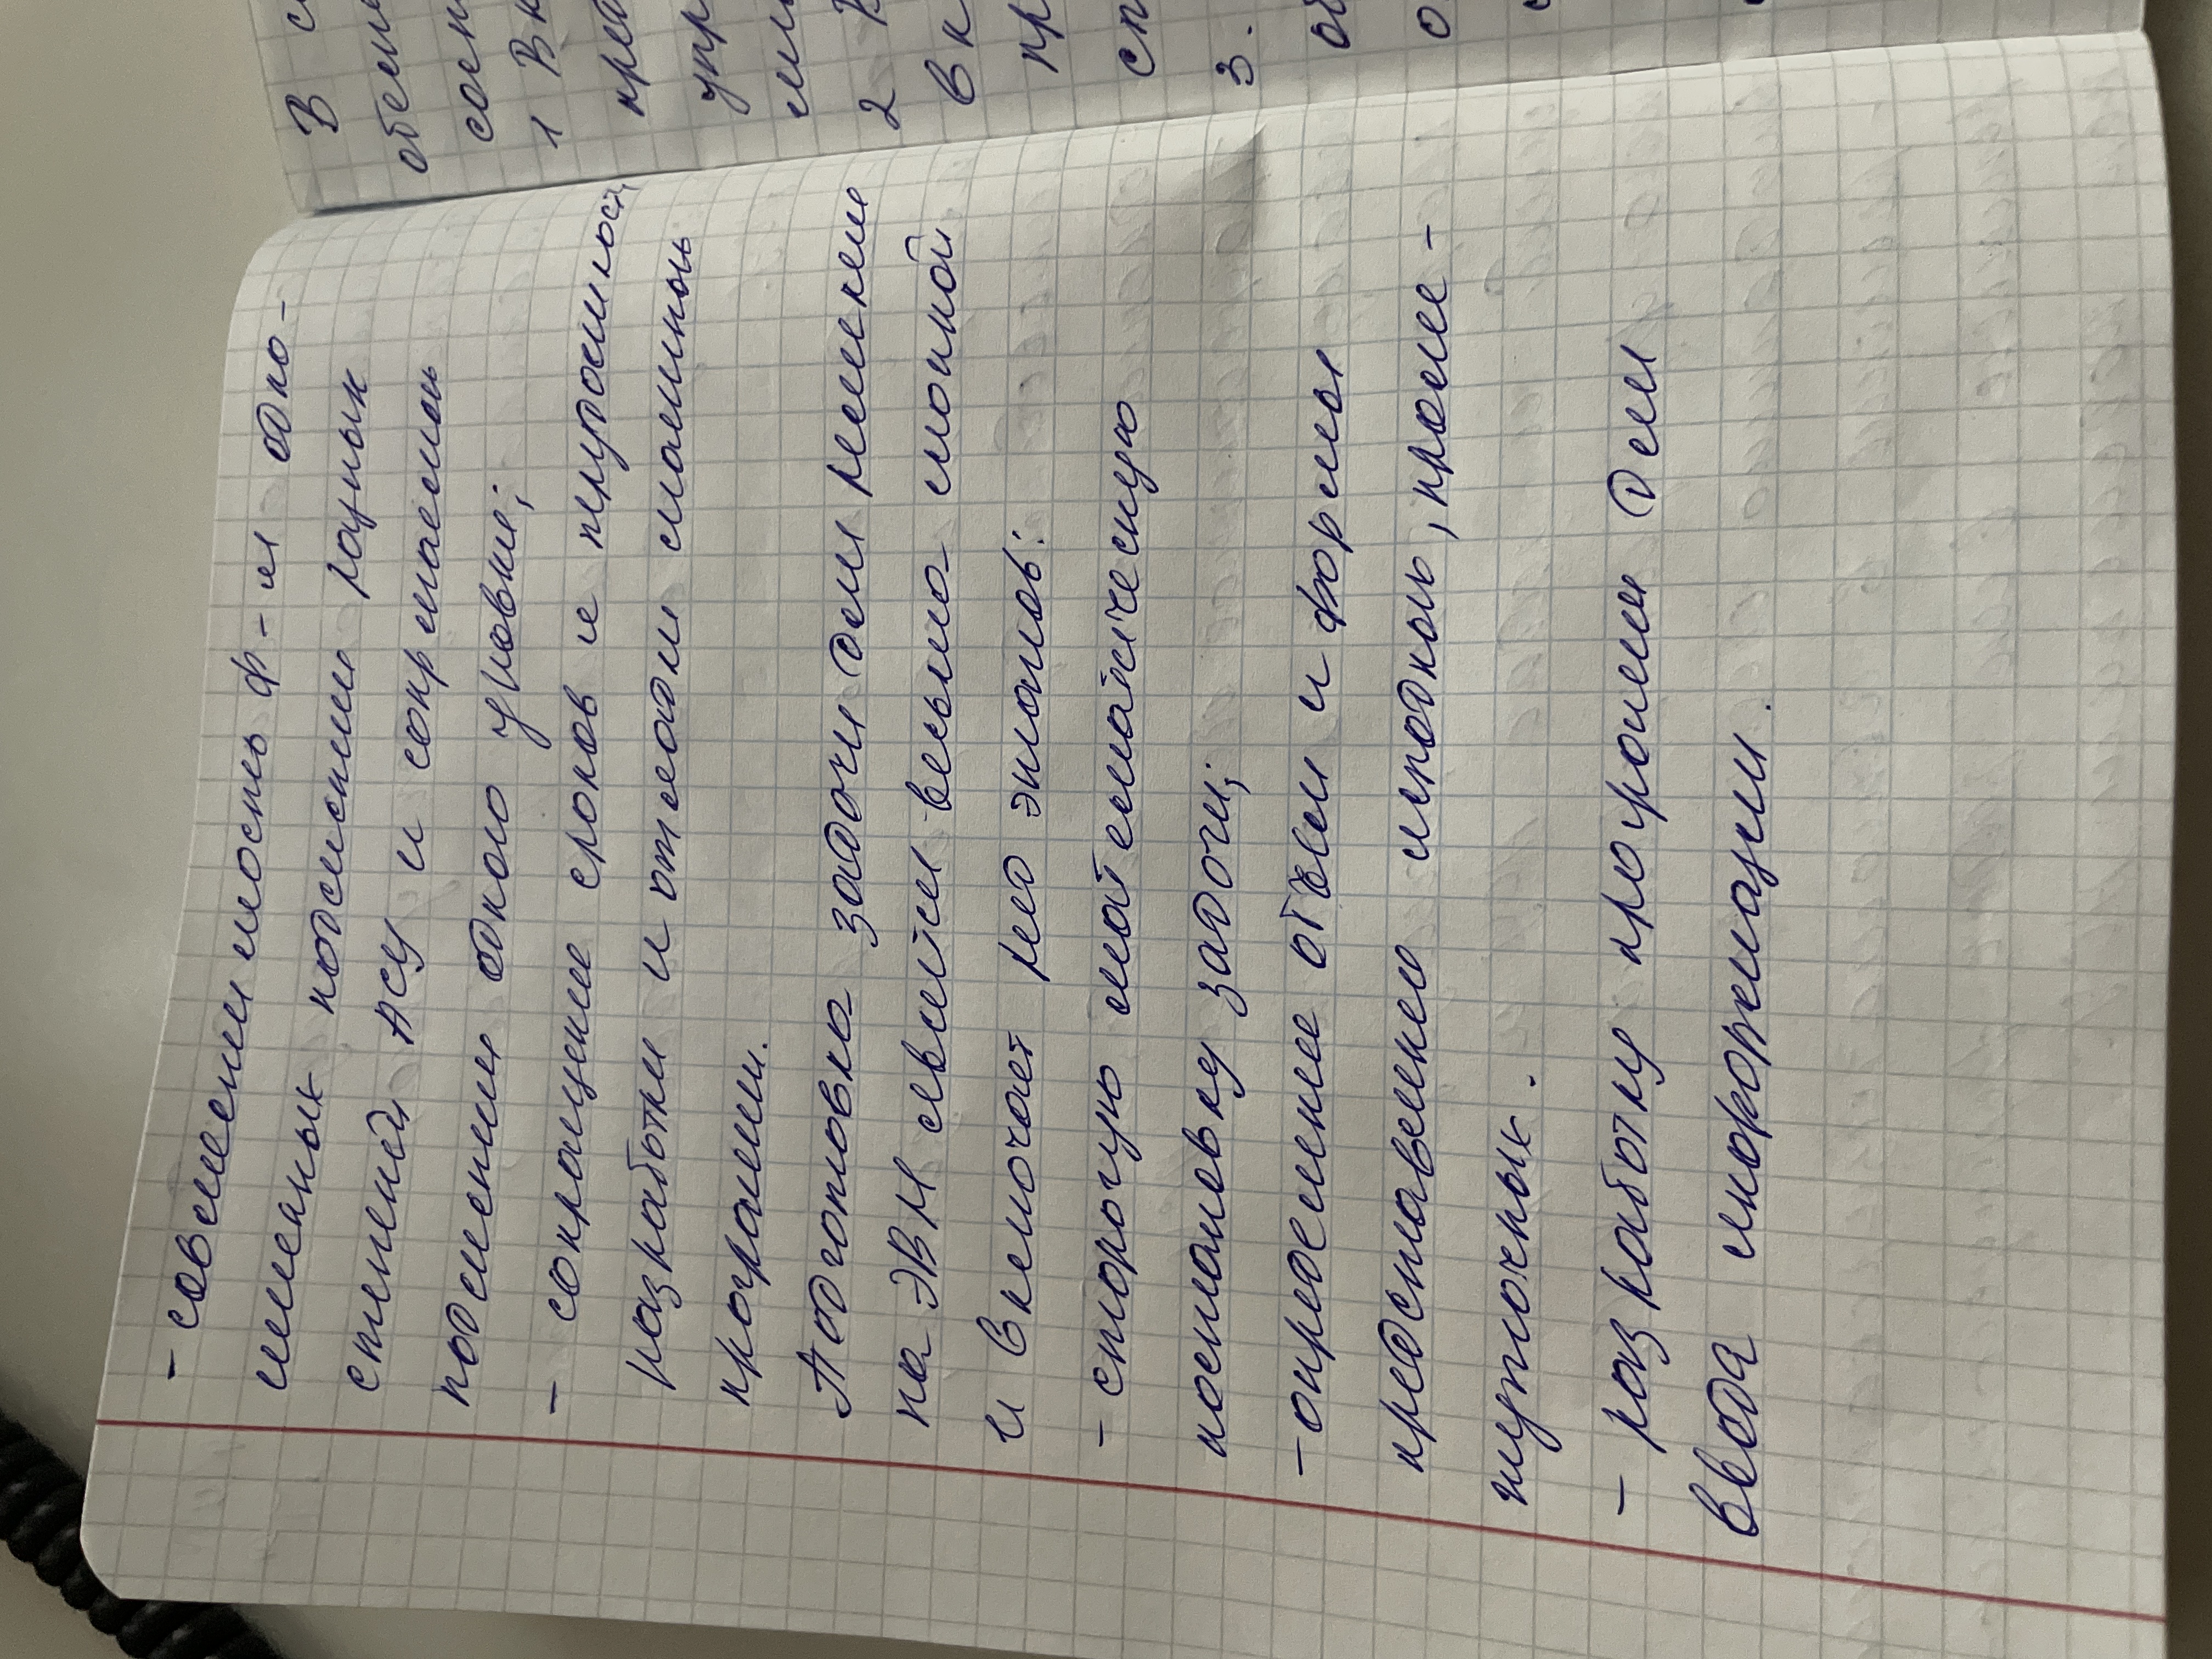 - совместимость ф-и одно-
именных подсистем разных
степеней АСУ и сопрягаемых
подсистем одного уровня;
- сокращение сроков и трудоемкость
разработки и отладки машинных
программ.
Подготовка задачи для решения
на ЭВМ является весьма сложной
и включает ряд этапов:
- строгую математическую
постановку задачи;
- определение объема и формы
представления исходных, проме-
жуточных.
- разработку программы для
ввода информации.
В
1 В
2
в
3.